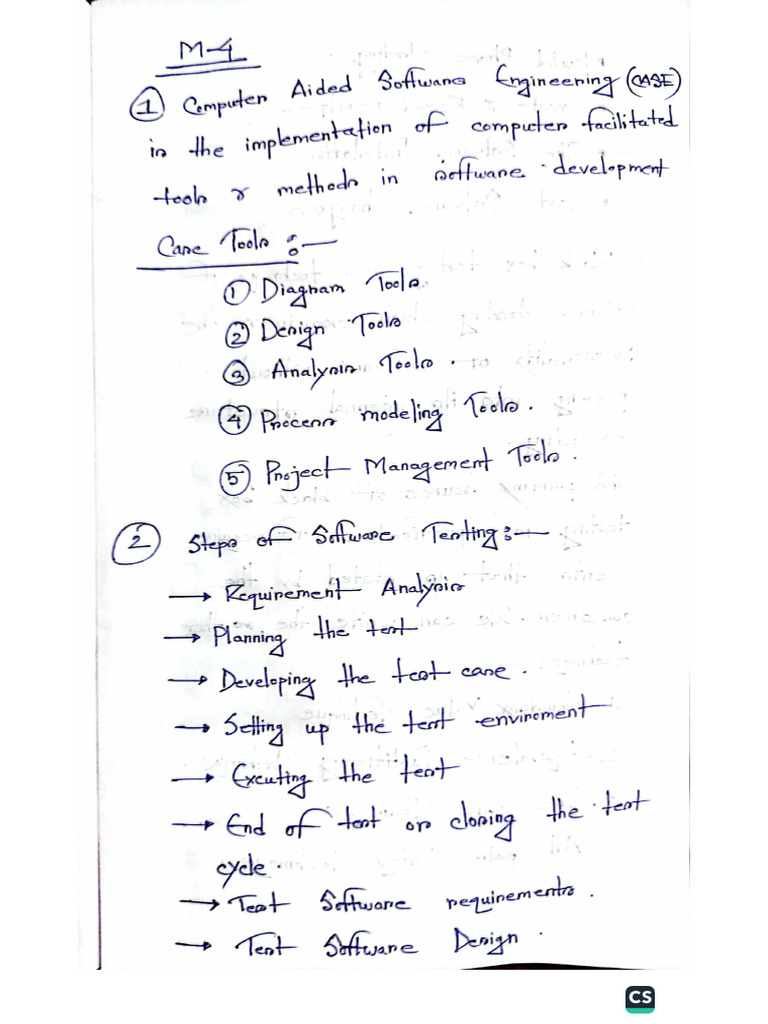 M-4
① Computer Aided Software Engineering (CASE)
is the implementation of computer facilitated
tools & methods in software development
Case Tools :—
① Diagram Tools.
② Design Tools
③ Analysis Tools.
④ Process modeling Tools.
⑤. Project Management Tools.
② Steps of Software Testing:—
→ Requirement Analysis
→ Planning the test
→ Developing the test case.
→ Setting up the test enviroment
→ Excuting the test
→ End of test or closing the test
cycle.
→ Test Software requirements.
→ Test Software Design.
CS